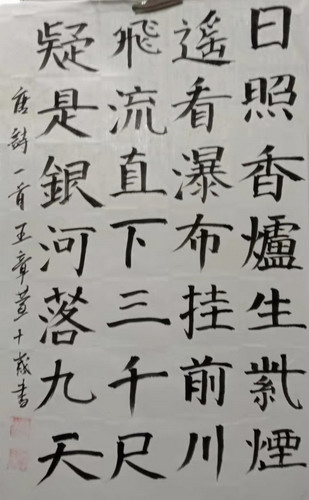 日照香爐生紫煙
遙看瀑布挂前川
飛流直下三千尺
疑是銀河落九天
唐詩一首王章萱十歲書